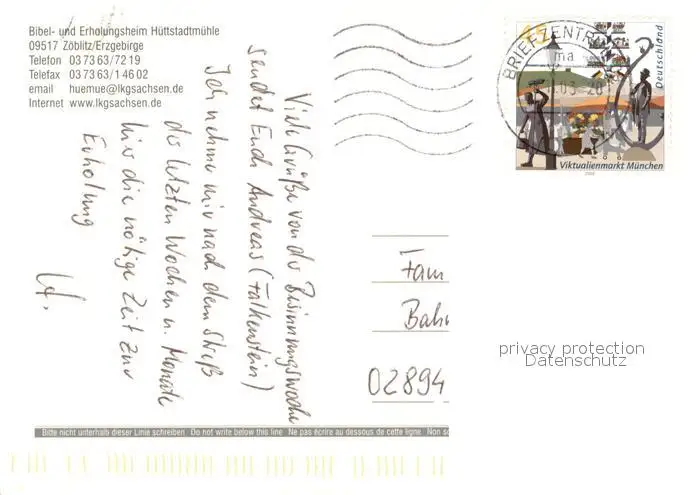 Bibel- und Erholungsheim Hüttstadtmühle
09517 Zöblitz/Erzgebirge
Telefon 0 73 63/72 19
Telefax 0 73 63/1 46 02
email huemue@lkgsachsen.de
Internet www.lkgsachsen.de
Viele Grüße von der Besinnungswoche
sendet Euch Andreas (Falkenstein)
Ich nehme mir nach dem Streß
der letzten Wochen u. Monate
hier die nötige Zeit zur
Erholung
BRIEFZENTRUM
ma
.03-20
45
Deutschland
Viktualienmarkt München
Fam
Bahn
02894
privacy protection
Datenschutz
Bitte nicht unterhalb dieser Linie schreiben. Do not write below this line Ne pas écrire au dessous de cette ligne. Non sc